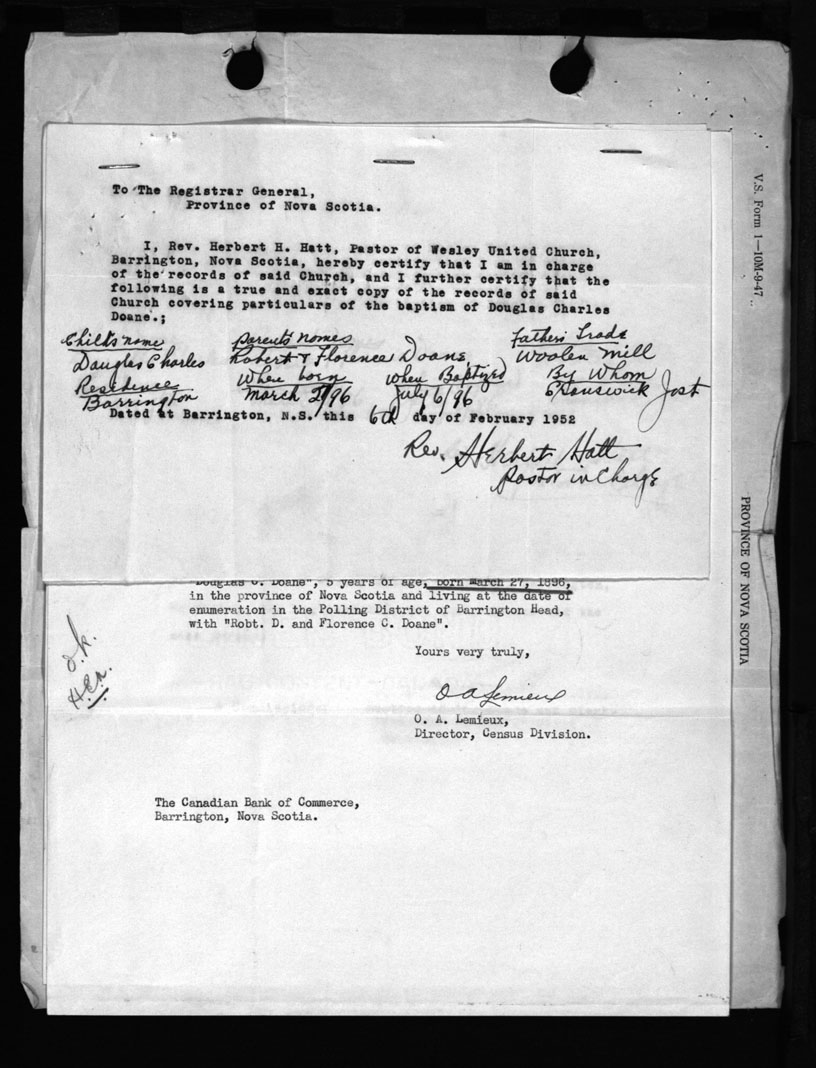 To The Registrar General,
Province of Nova Scotia.
I, Rev. Herbert H. Hatt, Pastor of Wesley United Church,
Barrington, Nova Scotia, hereby certify that I am in charge
of the records of said Church, and I further certify that the
following is a true and exact copy of the records of said
Church covering particulars of the baptism of Douglas Charles
Doane.;
Child's name Parents' names Father's Trade
Douglas Charles Robert & Florence Doane Woolen Mill
Residence When born When Baptized By Whom
Barrington March 27/96 July 6/96 Cranswick Jost
Dated at Barrington, N.S. this 6th day of February 1952
Rev. Herbert Hatt
Pastor in Charge
"Douglas C. Doane", 5 years of age, born March 27, 1896,
in the province of Nova Scotia and living at the date of
enumeration in the Polling District of Barrington Head,
with "Robt. D. and Florence C. Doane".
Yours very truly,
O A Lemieux
O. A. Lemieux,
Director, Census Division.
The Canadian Bank of Commerce,
Barrington, Nova Scotia.
O.K.
V.S. Form 1—10M-9-47
PROVINCE OF NOVA SCOTIA